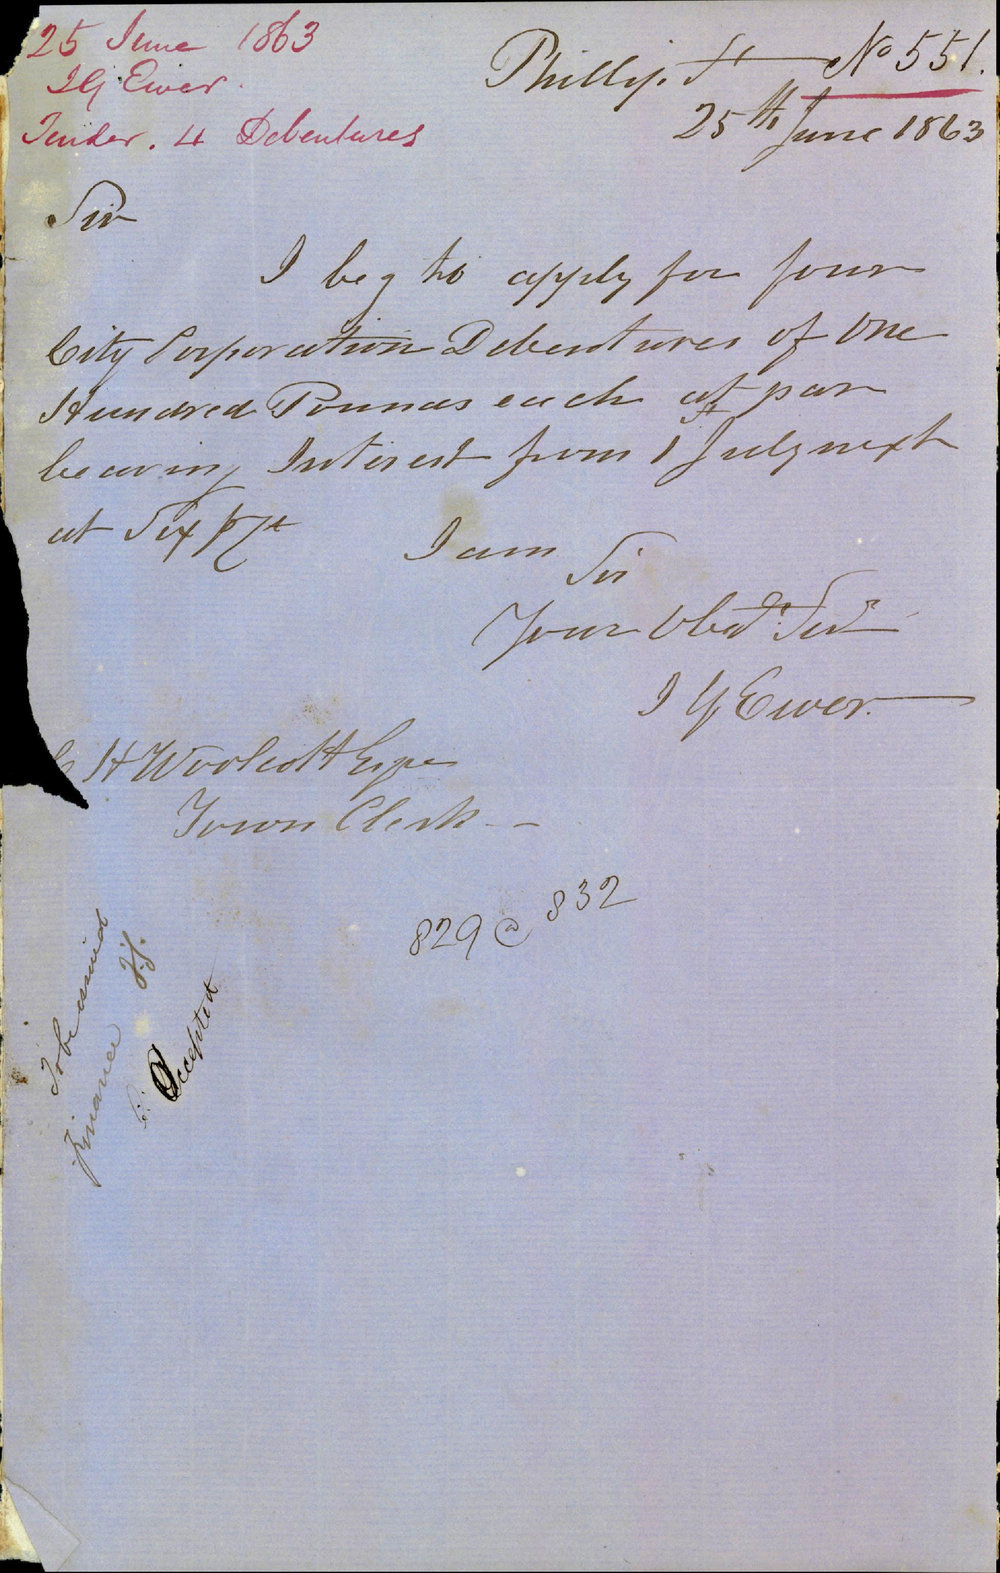 25 June 1863
J G Ewer.
Tender. 4 Debentures
Phillip St No 551.
25th June 1863
Sir
I beg to apply for four
City Corporation Debentures of One
Hundred Pounds each at par
bearing Interest from 1st July next
at Six p Ct
I am
Sir
Your Obdt. Servt
J G Ewer.
C H Woolcott Esqre
Town Clerk
829 @ 832
To be
Finance
Accepted